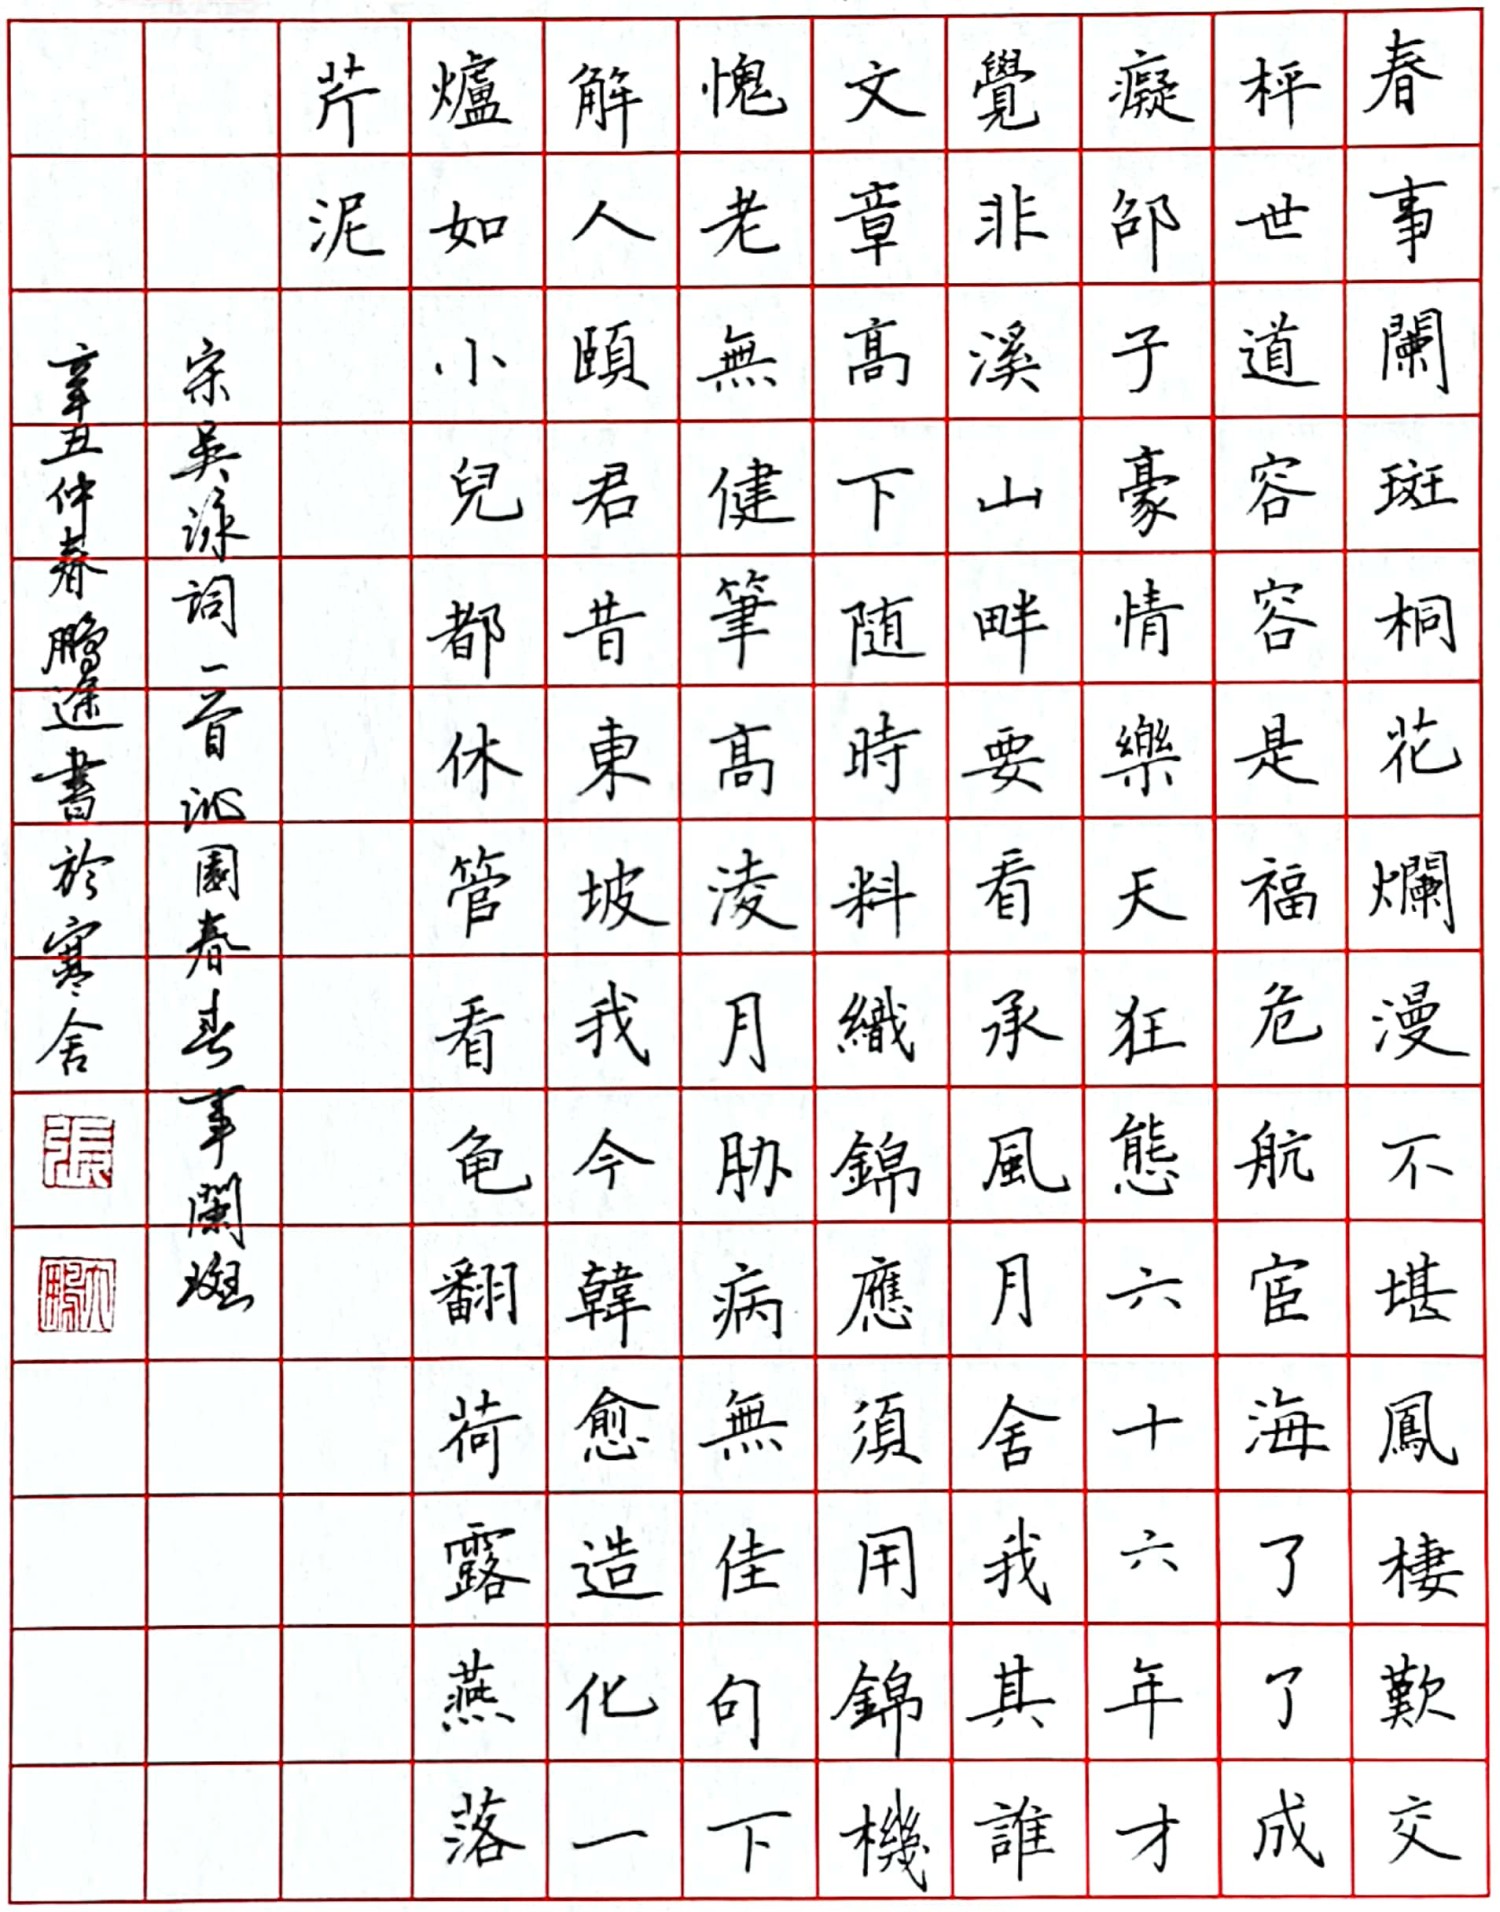 春事闌斑桐花爛漫不堪鳳棲歎交
枰世道容容是福危航宦海了了成
癡邵子豪情樂天狂態六十六年才
覺非溪山畔要看承風月舍我其誰
文章高下随時料織錦應須用錦機
愧老無健筆高淩月胁病無佳句下
解人頤君昔東坡我今韓愈造化一
爐如小兒都休管看龟翻荷露燕落
芹泥
宋吳泳詞一首沁園春春事闌斑
辛丑仲春鵬途書於寒舍
張